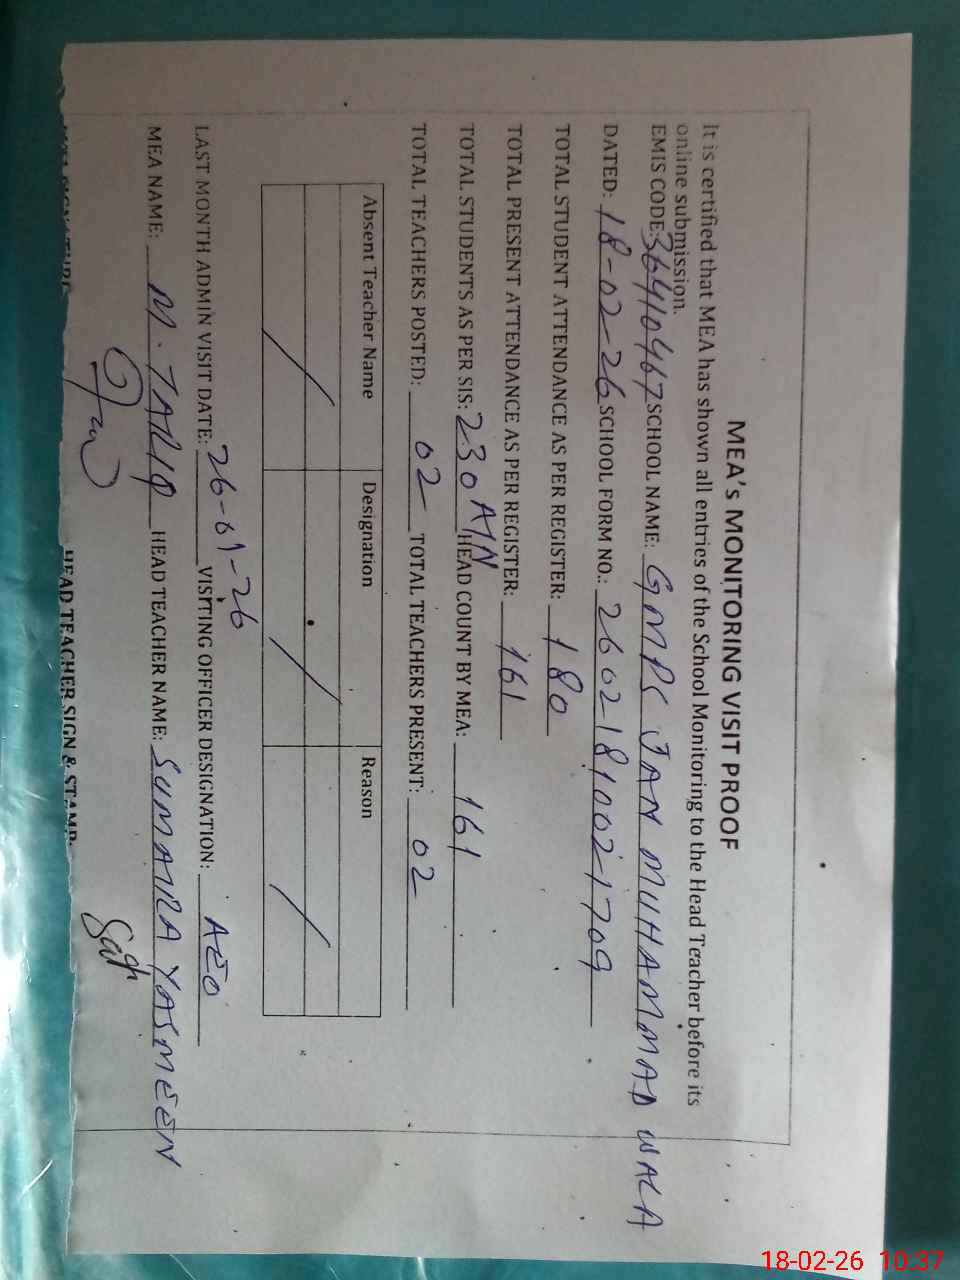 MEA's MONITORING VISIT PROOF
It is certified that MEA has shown all entries of the School Monitoring to the Head Teacher before its
online submission.
EMIS CODE: 36410467 SCHOOL NAME: GMPS JAN MUHAMMAD WALA
DATED: 18-02-26 SCHOOL FORM NO.: 2602181002-1709
TOTAL STUDENT ATTENDANCE AS PER REGISTER: 180
TOTAL PRESENT ATTENDANCE AS PER REGISTER: 161
TOTAL STUDENTS AS PER SIS: 230 HEAD COUNT BY MEA: 161
TOTAL TEACHERS POSTED: 02 TOTAL TEACHERS PRESENT: 02
Absent Teacher Name Designation Reason
LAST MONTH ADMIN VISIT DATE: 26-01-26 VISITING OFFICER DESIGNATION: AEO
MEA NAME: M. TARIQ HEAD TEACHER NAME: SUMAIRA YASMEEN
HEAD TEACHER SIGN & STAMP
18-02-26 10:37